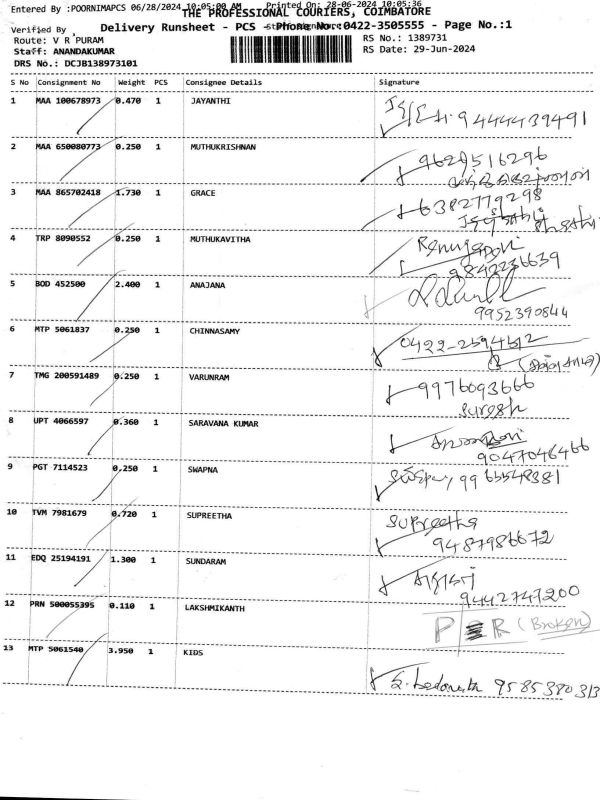 Entered By :POORNIMAPCS 06/28/2024 10:05:00 AM Printed On: 28-06-2024 10:05:36
THE PROFESSIONAL COURIERS, COIMBATORE
Verified By Delivery Runsheet - PCS - Phone No.:0422-3505555 - Page No.:1
Route: V R PURAM RS No.: 1389731
Staff: ANANDAKUMAR RS Date: 29-Jun-2024
DRS No.: DCJB138973101
S No Consignment No Weight PCS Consignee Details Signature
1 MAA 100678973 0.470 1 JAYANTHI 9444439491
2 MAA 650080773 0.250 1 MUTHUKRISHNAN 9629516296
3 MAA 865702418 1.730 1 GRACE 6382779298
4 TRP 8090552 0.250 1 MUTHUKAVITHA
9842236639
5 BOD 452500 2.400 1 ANAJANA
9952390844
6 MTP 5061837 0.250 1 CHINNASAMY 0422-2594512
7 TMG 200591489 0.250 1 VARUNRAM 9976093666
Suresh
8 UPT 4066597 0.360 1 SARAVANA KUMAR
9047046466
9 PGT 7114523 0.250 1 SWAPNA 9965548381
10 TVM 7981679 0.720 1 SUPREETHA Supreetha
9487986672
11 EDQ 25194191 1.300 1 SUNDARAM
9442747200
12 PRN 500055395 0.110 1 LAKSHMIKANTH (Broken)
13 MTP 5061540 3.950 1 KIDS
9585380313